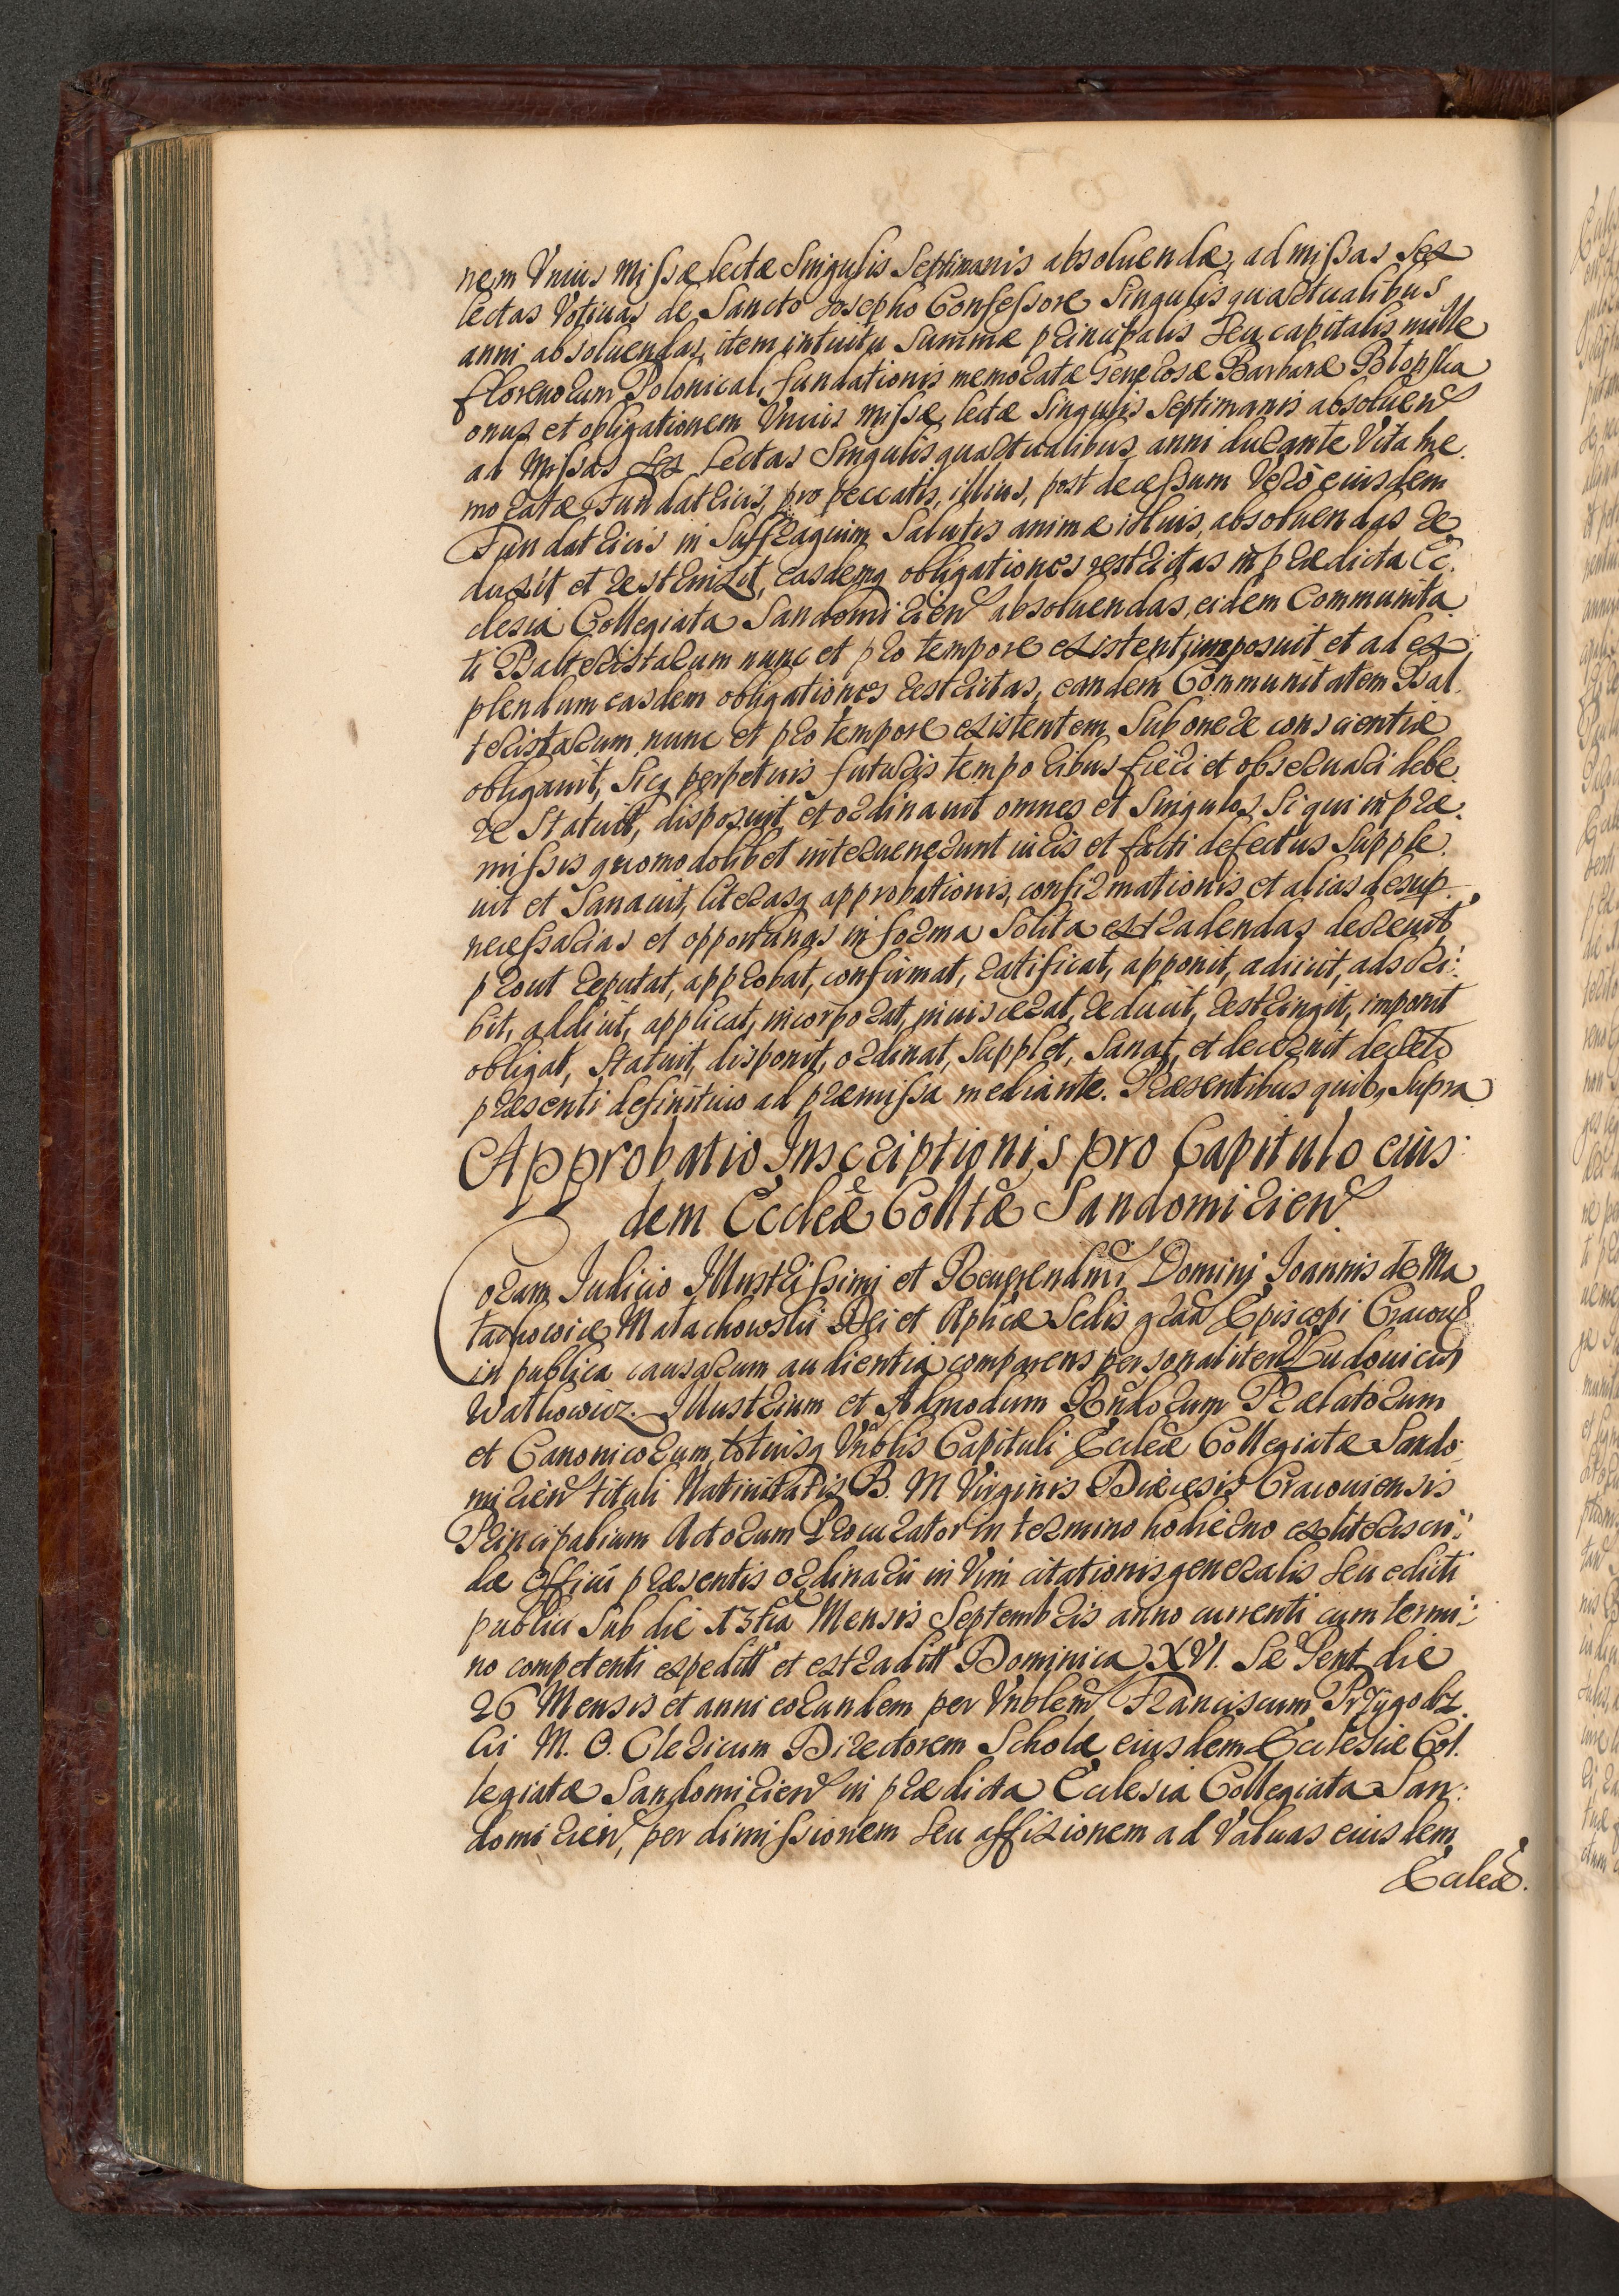 nem Vnius Missæ lectæ Singulis Septimanis absoluendæ, ad missas Sex
lectas Votiuas de Sancto Josepho Confessore Singulis quartualibus
anni absoluendas, item intuitu Summæ principalis Seu capitalis mille
florenorum Polonical, fundationis memoratæ Generosæ Barbaræ
onus et obligationem Vnius missæ lectæ Singulis Septimanis absoluen
ad Missas Sex Lectas Singulis quartualibus anni durante Vita me.
moratæ Fundatricis, pro peccatis, illius, post decessum Verò eiusdem
Fundatricis in Suffragium Salutis animæ illius, absoluendas re,
duxit et restrinxit, easdemq obligationes restrictas in prædicta Ec.
clesia Collegiata Sandomirien absoluendas, eidem Communita
ti Psalteristarum nunc et pro tempore existenti imposuit et ad ex
plendum easdem obligationes restrictas, eandem Communitatem Psal.
teristarum nunc et pro tempore existentem Sub onere conscientiæ
obligauit, Sicq perpetuis futuris temporibus fieri et obseruari debe.
re Statuit, disposuit et ordinauit omnes et Singulos Si qui in præ.
missis quomodolibet interuenerunt iuris et facti defectus Supple.
uit et Sanauit, literasq approbationis, confirmationis et alias desup.
necessarias et opportunas in forma Solita extradendas decreuit
prout reputat, approbat, confirmat, ratificat, apponit, adiicit, adscri:
bit, addicit, applicat, incorporat, inuiscerat, reducit, restringit, imponit
obligat, Statuit, disponit, ordinat, Supplet, Sanat, et decernit decreto
præsenti definitiuo ad præmissa mediante. Præsentibus quib, Supra
Approbatio Inscriptionis pro Capitulo eius:
dem Eccleæ Colltæ Sandomirien.
Coram Iudicio Illustrissimi et Reuerendmi Domini Ioannis de Ma
łachowice Małachowski Dei et Aplicæ Sedis grãa Episcopi Cracou
in publica causarum audientia comparens personaliter Ludouicus
Watkowicz. Illustrium et Admodum Rndorum Prælatorum
et Canonicorum, totiusq Vnblis Capituli Eccleæ Collegiatæ Sando
mirien tituli Natiuitatis B. M Virginis Diæcesis Cracouiensis
Principalium Actorum Procurator in termino hodierno ex literis cri:
dæ Officii præsentis ordinarii in Vim citationis generalis Seu edicti
publici Sub die 13tia Mensis Septembris anno currenti cum termi:
no competenti expeditt et extraditt Dominica XVI. Sæ Pent. die
26 Mensis et anni eorundem per Vnblem Franciscum Przygodz.
ki M. O. Clericum Directorem Scholæ eiusdem Ecclesiæ Col.
legiatæ Sandomirien in prædicta Ecclesia Collegiata San:
domirien, per dimissionem Seu affixionem ad Valuas eiusdem
Eccleæ.